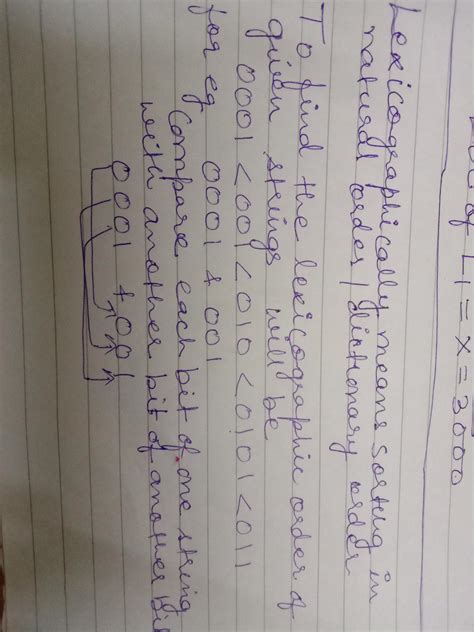 of L1 = x = 3000
Lexicographically means sorting in
natural order / dictionary order
To find the lexicographic order of
given strings will be
0001 < 001 < 010 < 0101 < 011
for eg 0001 & 001
Compare each bit of one string
with another bit of another
0001 & 001